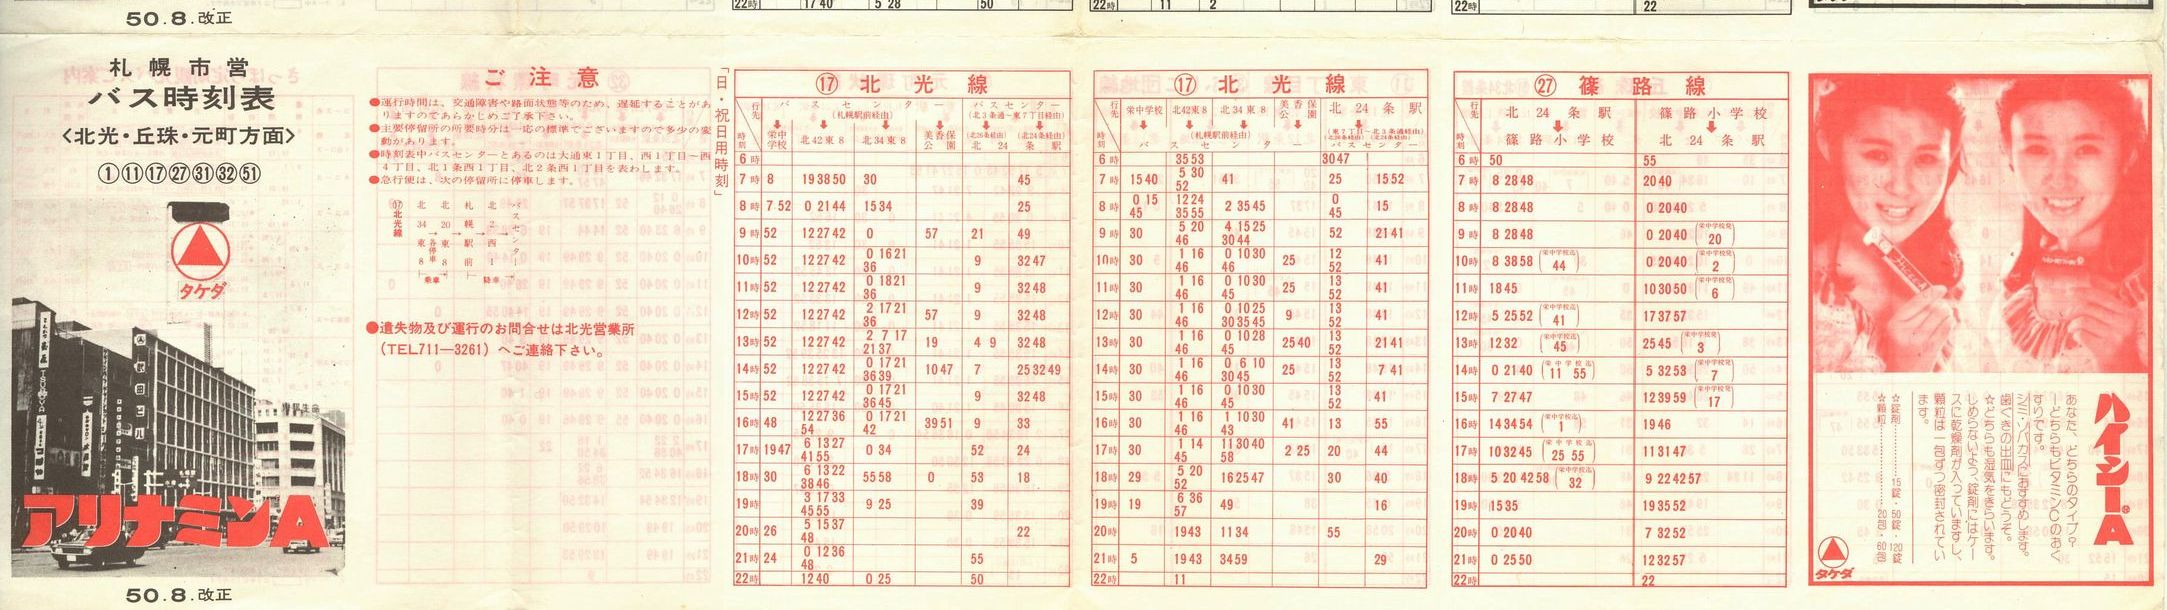 22時 17 40 5 28 50
22時 11 2
22時 22
50.8.改正
札幌市営
バス時刻表
<北光・丘珠・元町方面>
①⑪⑰㉗㉛㉜51
タケダ
アリナミンA
50.8.改正
ご注意
●運行時間は、交通障害や路面状態等のため、遅延することがあ
りますのであらかじめご了承下さい。
●主要停留所の所要時分は一応の標準でございますので多少の変
動があります。
●時刻表中バスセンターとあるのは大通東1丁目、西1丁目〜西
4丁目、北1条西1丁目、北2条西1丁目を表わします。
●急行便は、次の停留所に停車します。
⑰北光線
北34東8
各停車
北20東8
札幌駅前
北2西1
バスセンター
乗車
降車
●遺失物及び運行のお問合せは北光営業所
(TEL711―3261)へご連絡下さい。
「日・祝日用時刻」
⑰ 北光線
行先
時刻
バスセンター
(札幌駅前経由)
バスセンター
(北3条通〜東7丁目経由)
栄中学校
北42東8
北34東8
美香保公園
(北26条経由)
(北24条経由)
北24条駅
6時
7時 8 19 38 50 30 45
8時 7 52 0 21 44 15 34 25
9時 52 12 27 42 0 57 21 49
10時 52 12 27 42 0 16 21 36 9 32 47
11時 52 12 27 42 0 18 21 36 9 32 48
12時 52 12 27 42 2 17 21 36 57 9 32 48
13時 52 12 27 42 2 7 17 21 37 19 4 9 32 48
14時 52 12 27 42 0 17 21 36 39 10 47 7 25 32 49
15時 52 12 27 42 0 17 21 36 45 9 32 48
16時 48 12 27 36 54 0 17 21 42 39 51 9 33
17時 19 47 6 13 27 41 55 0 34 52 24
18時 30 6 13 22 38 46 55 58 0 53 18
19時 3 17 33 45 55 9 25 39
20時 26 5 15 37 48 22
21時 24 0 12 36 48 55
22時 12 40 0 25 50
⑰ 北光線
行先
時刻
栄中学校
北42東8
北34東8
美香保公園
北24条駅
(札幌駅前経由)
(東7丁目〜北3条通経由)
バスセンター
バスセンター
6時 35 53 30 47
7時 15 40 5 30 52 41 25 15 52
8時 0 15 45 12 24 35 55 2 35 45 0 45 15
9時 30 5 20 46 4 15 25 30 44 52 21 41
10時 30 1 16 46 0 10 30 46 25 12 52 41
11時 30 1 16 46 0 10 30 45 25 13 52 41
12時 30 1 16 46 0 10 25 30 35 45 9 13 52 41
13時 30 1 16 46 0 10 28 45 25 40 13 52 21 41
14時 30 1 16 46 0 6 10 30 45 25 13 52 7 41
15時 30 1 16 46 0 10 30 45 13 52 41
16時 30 1 16 46 1 10 30 43 41 13 55
17時 30 1 14 45 11 30 40 58 2 25 20 44
18時 29 5 20 52 16 25 47 30 40
19時 19 6 36 57 49 16
20時 19 43 11 34 55
21時 5 19 43 34 59 29
22時 11
㉗ 篠路線
行先
時刻
北24条駅
篠路小学校
篠路小学校
北24条駅
6時 50 55
7時 8 28 48 20 40
8時 8 28 48 0 20 40
9時 8 28 48 0 20 40 (栄中学校発 20)
10時 8 38 58 (栄中学校迄 44) 0 20 40 (栄中学校発 2)
11時 18 45 10 30 50 (栄中学校発 6)
12時 5 25 52 (栄中学校迄 41) 17 37 57
13時 12 32 (栄中学校迄 45) 25 45 (栄中学校発 3)
14時 0 21 40 (栄中学校迄 11 55) 5 32 53 (栄中学校発 7)
15時 7 27 47 12 39 59 (栄中学校発 17)
16時 14 34 54 (栄中学校迄 1) 19 46
17時 10 32 45 (栄中学校迄 25 55) 11 31 47
18時 5 20 42 58 (栄中学校迄 32) 9 22 42 57
19時 15 35 19 35 52
20時 0 20 40 7 32 52
21時 0 25 50 12 32 57
22時 22
ハイシーA
あなた、どちらのタイプ?
ーどちらもビタミンCのおく
すりです。
シミ・ソバカスにおすすめします。
歯ぐきの出血にもどうぞ。
☆どちらも湿気をきらいます。
しめらないよう、錠剤にはケー
スに乾燥剤が入っていますし、
顆粒は一包ずつ密封されてい
ます。
☆錠剤……15錠・50錠・120錠
☆顆粒……20包・60包
タケダ